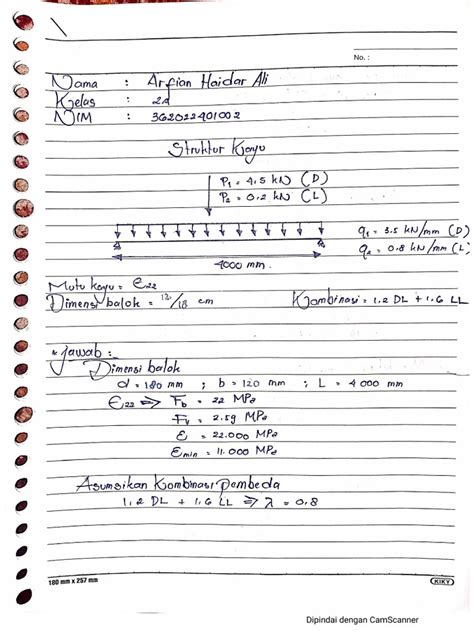 No. :
Nama : Arfian Haidar Ali
Kelas : 2d
NIM : 362022401002
Struktur Kayu
P1 = 4.5 kN (D)
P2 = 0.2 kN (L)
q1 = 3.5 kN/mm (D)
q2 = 0.8 kN/mm (L)
4000 mm
Mutu kayu = E22
Dimensi balok = 12/18 cm
Kombinasi = 1.2 DL + 1.6 LL
* Jawab :
Dimensi balok
d = 180 mm ; b = 120 mm ; L = 4000 mm
E22 => Fb = 22 MPa
Fv = 2.59 MPa
E = 22.000 MPa
Emin = 11.000 MPa
Asumsikan Kombinasi Pembeda
1.2 DL + 1.6 LL => λ = 0.8
180 mm x 257 mm
KIKY
Dipindai dengan CamScanner